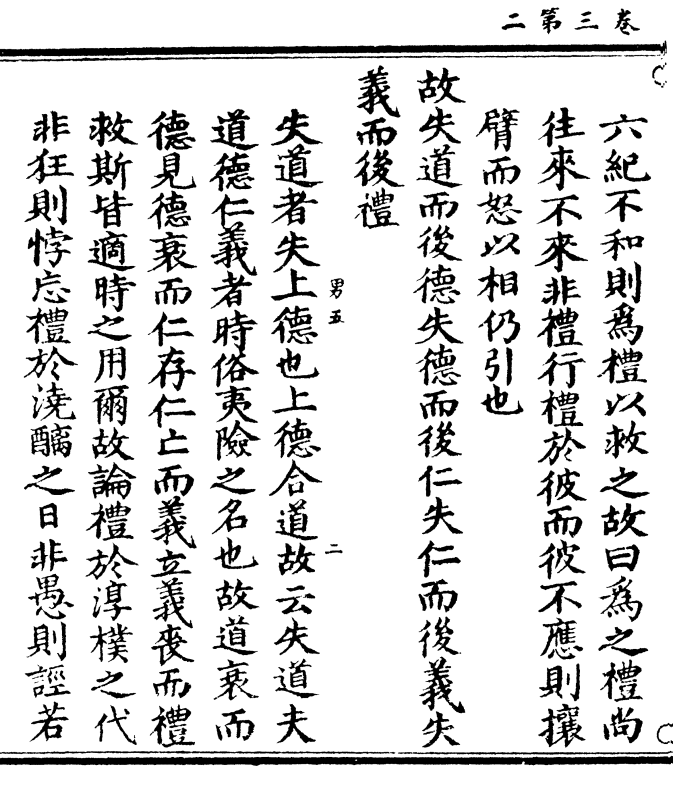 卷三第二
六紀不和則爲禮以救之故曰爲之禮尚
往來不來非禮行禮於彼而彼不應則攘
臂而怒以相仍引也
故失道而後德失德而後仁失仁而後義失
義而後禮
男五
二
失道者失上德也上德合道故云失道夫
道德仁義者時俗夷險之名也故道衰而
德見德衰而仁存仁亡而義立義喪而禮
救斯皆適時之用爾故論禮於淳樸之代
非狂則悖忘禮於澆醨之日非愚則誣若